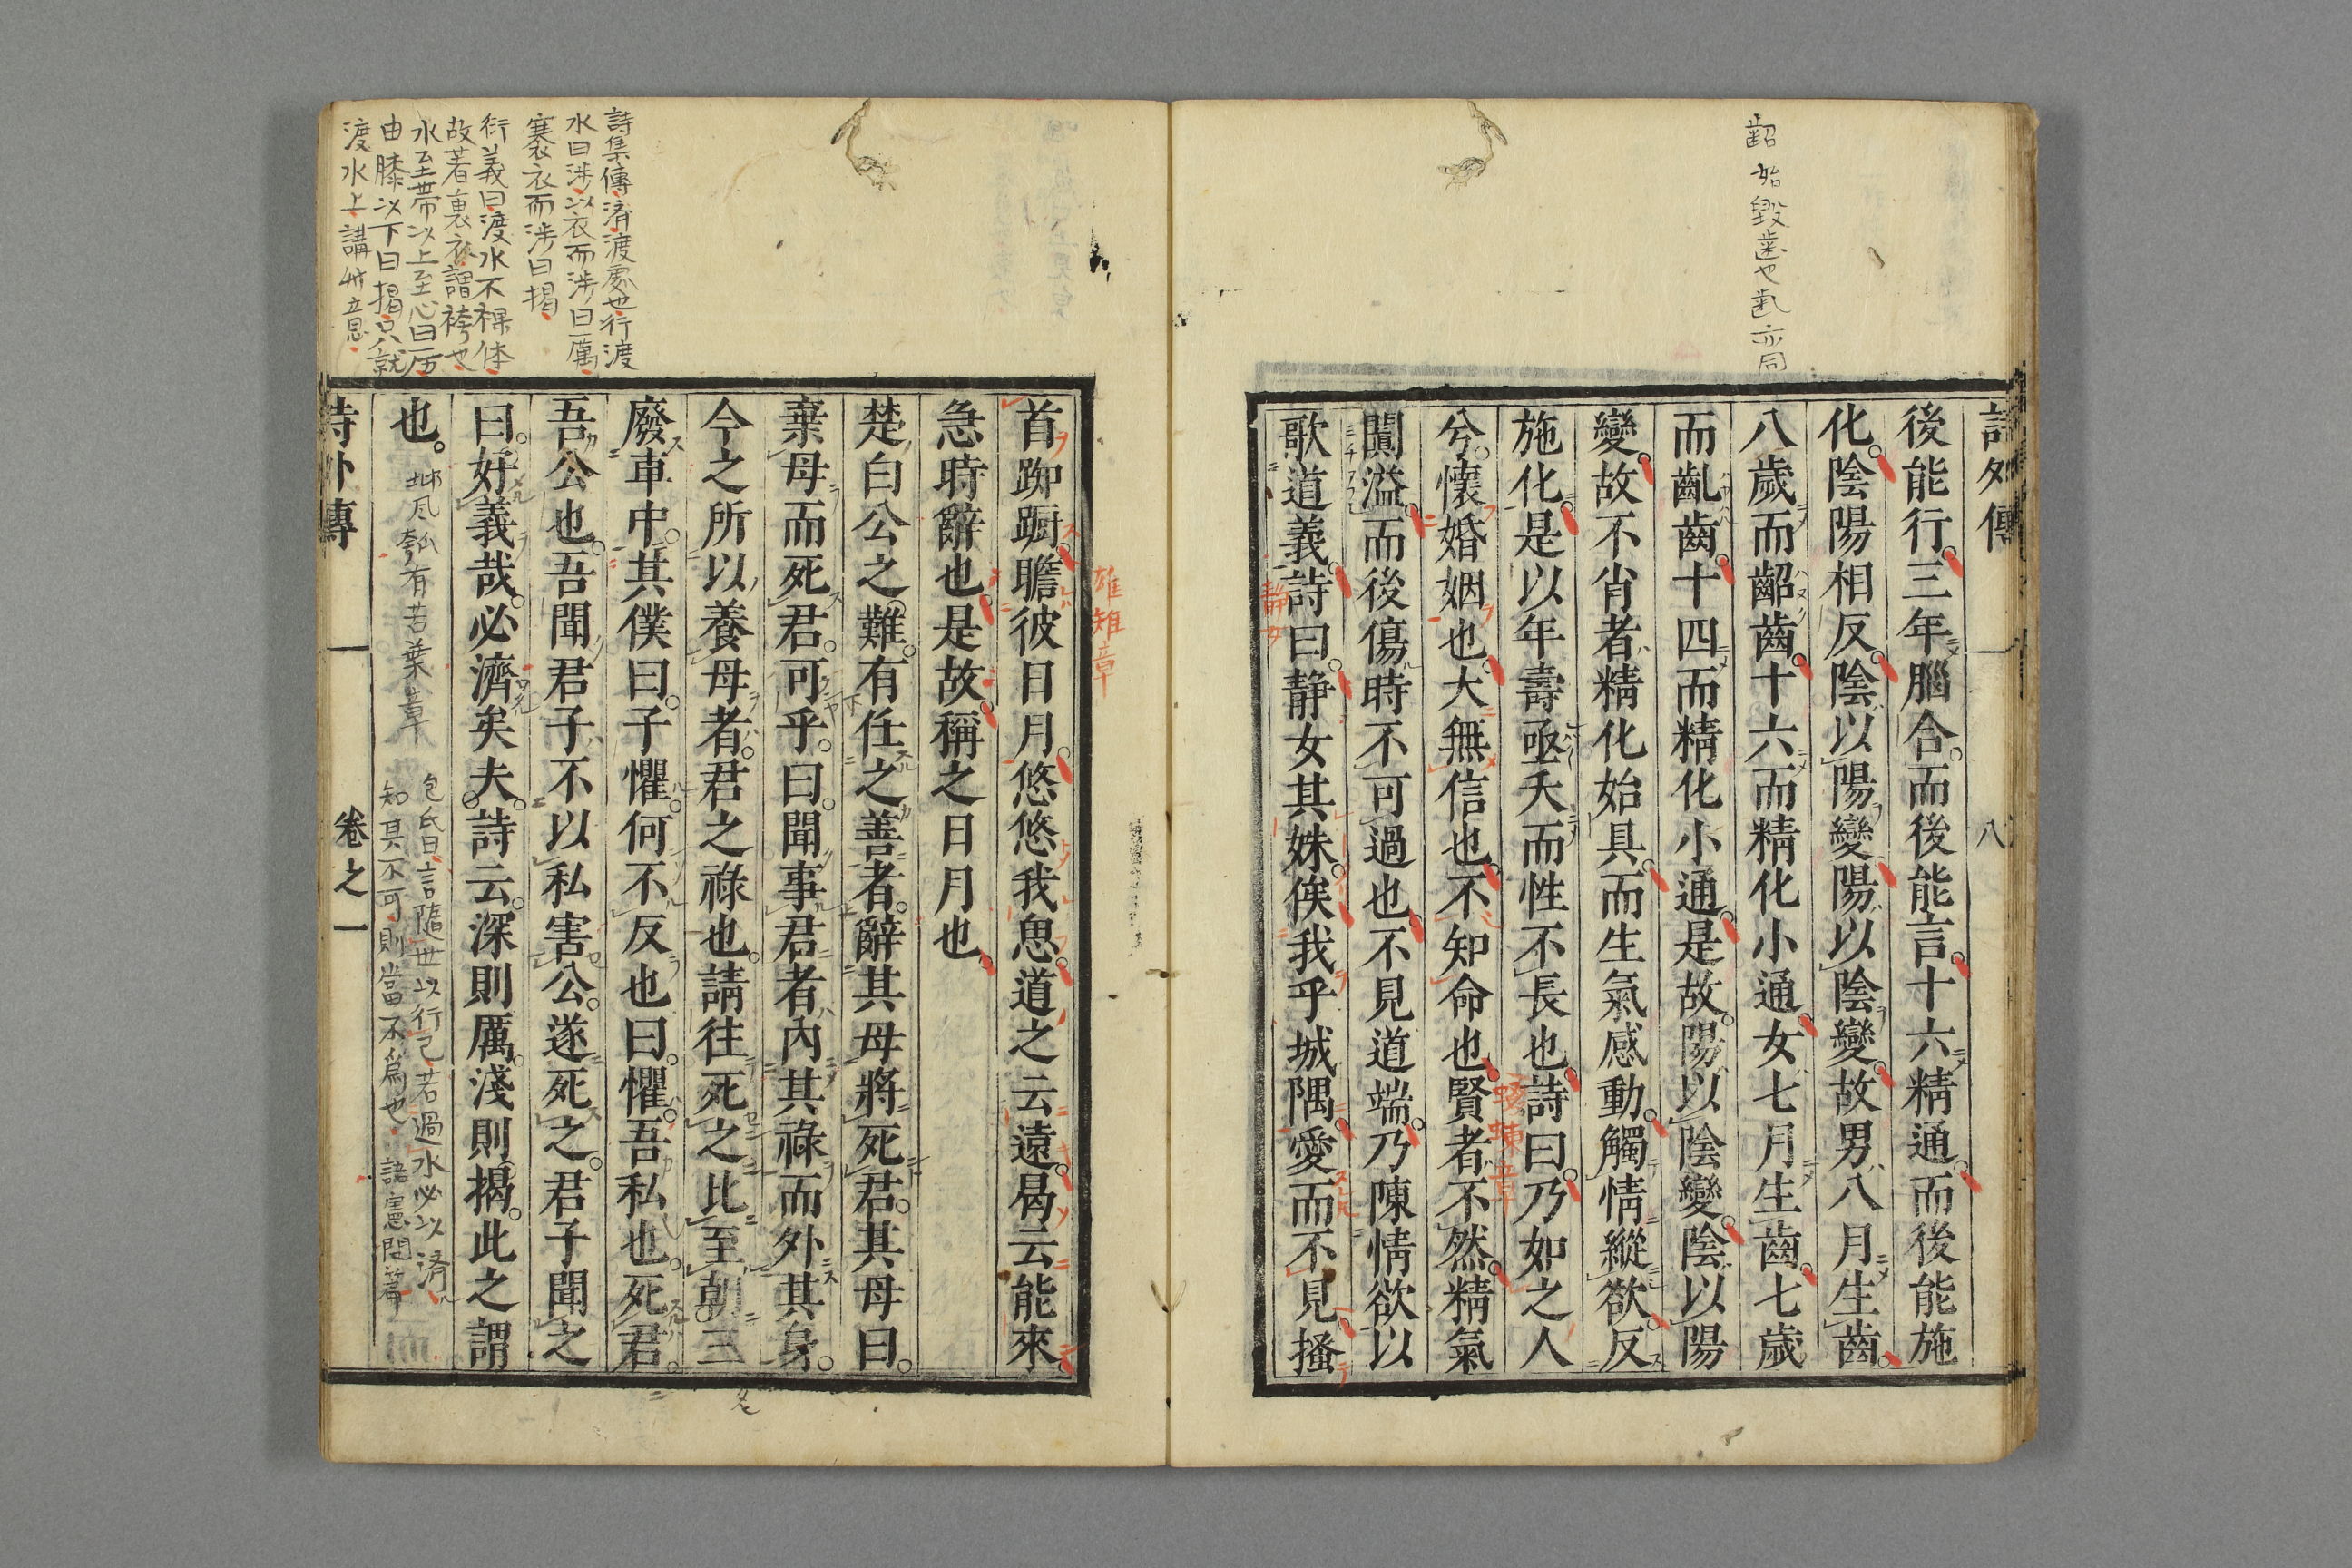 齠始毀齒也齔亦同
詩外傳
八
後能行。三年腦合。而後能言。十六精通。而後能施
化。陰陽相反。陰以陽變。陽以陰變。故男八月生齒。
八歲而齠齒。十六而精化小通。女七月生齒。七歲
而齔齒。十四而精化小通。是故陽以陰變。陰以陽
變。故不肖者精化始具。而生氣感動。觸情縱欲。反
施化。是以年壽亟夭而性不長也。詩曰。乃如之人
蝃蝀章
兮。懷婚姻也。大無信也。不知命也。賢者不然。精氣
闐溢。而後傷時不可過也。不見道端。乃陳情欲以
歌道義。詩曰。静女其姝。俟我乎城隅。愛而不見。搔
静女
雄雉章
首踟蹰。瞻彼日月。悠悠我思。道之云遠。曷云能來。
急時辭也。是故。稱之日月也。
楚白公之難。有任之善者。辭其母將死君。其母曰。
棄母而死君。可乎。曰。聞事君者。內其祿而外其身。
今之所以養母者。君之祿也。請往死之。比至朝三
廢車中。其僕曰。子懼。何不反也。曰。懼。吾私也。死君。
吾公也。吾聞君子不以私害公。遂死之。君子聞之
曰。好義哉。必濟矣夫。詩云。深則厲。淺則揭。此之謂
也。
邶風匏有苦葉章
包氏曰言隨世以行己若過水必以濟
知其不可則當不爲也 語憲問篇
詩外傳
卷之一
詩集傳濟渡處也行渡
水曰涉以衣而涉曰厲
褰衣而涉曰揭
衍義曰渡水不裸体
故著裏衣謂袴也
水至帯以上至心曰厉
由膝以下曰揭只就
渡水上講此意